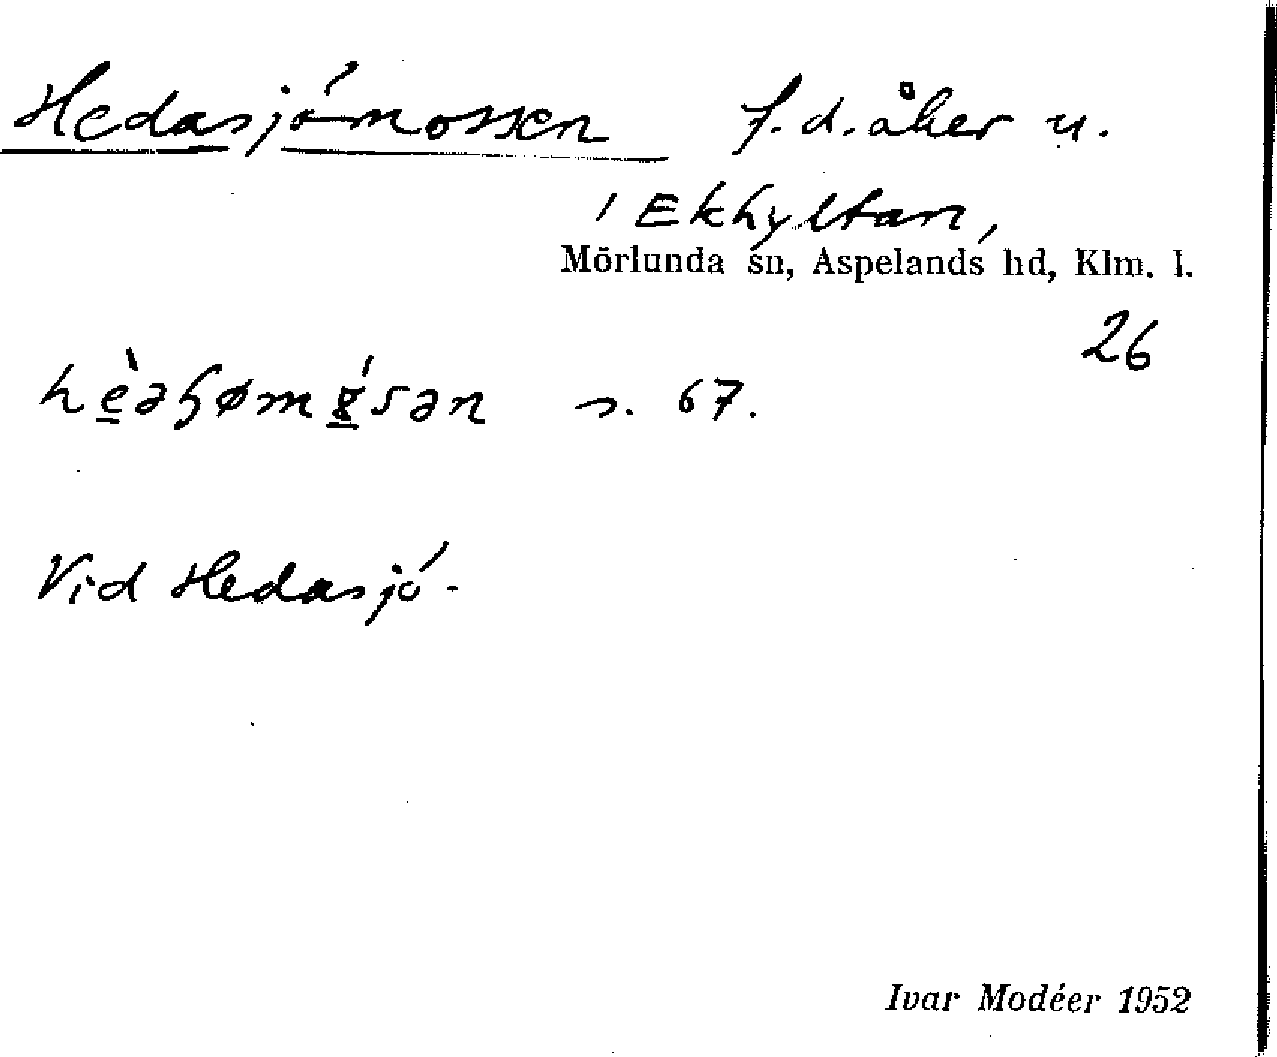 Hedasjömossen f.d. åker u.
i Ekhyltan,
Mörlunda sn, Aspelands hd, Klm. l.
26
s. 67.
Vid Hedasjö-
Ivar Modéer 1952